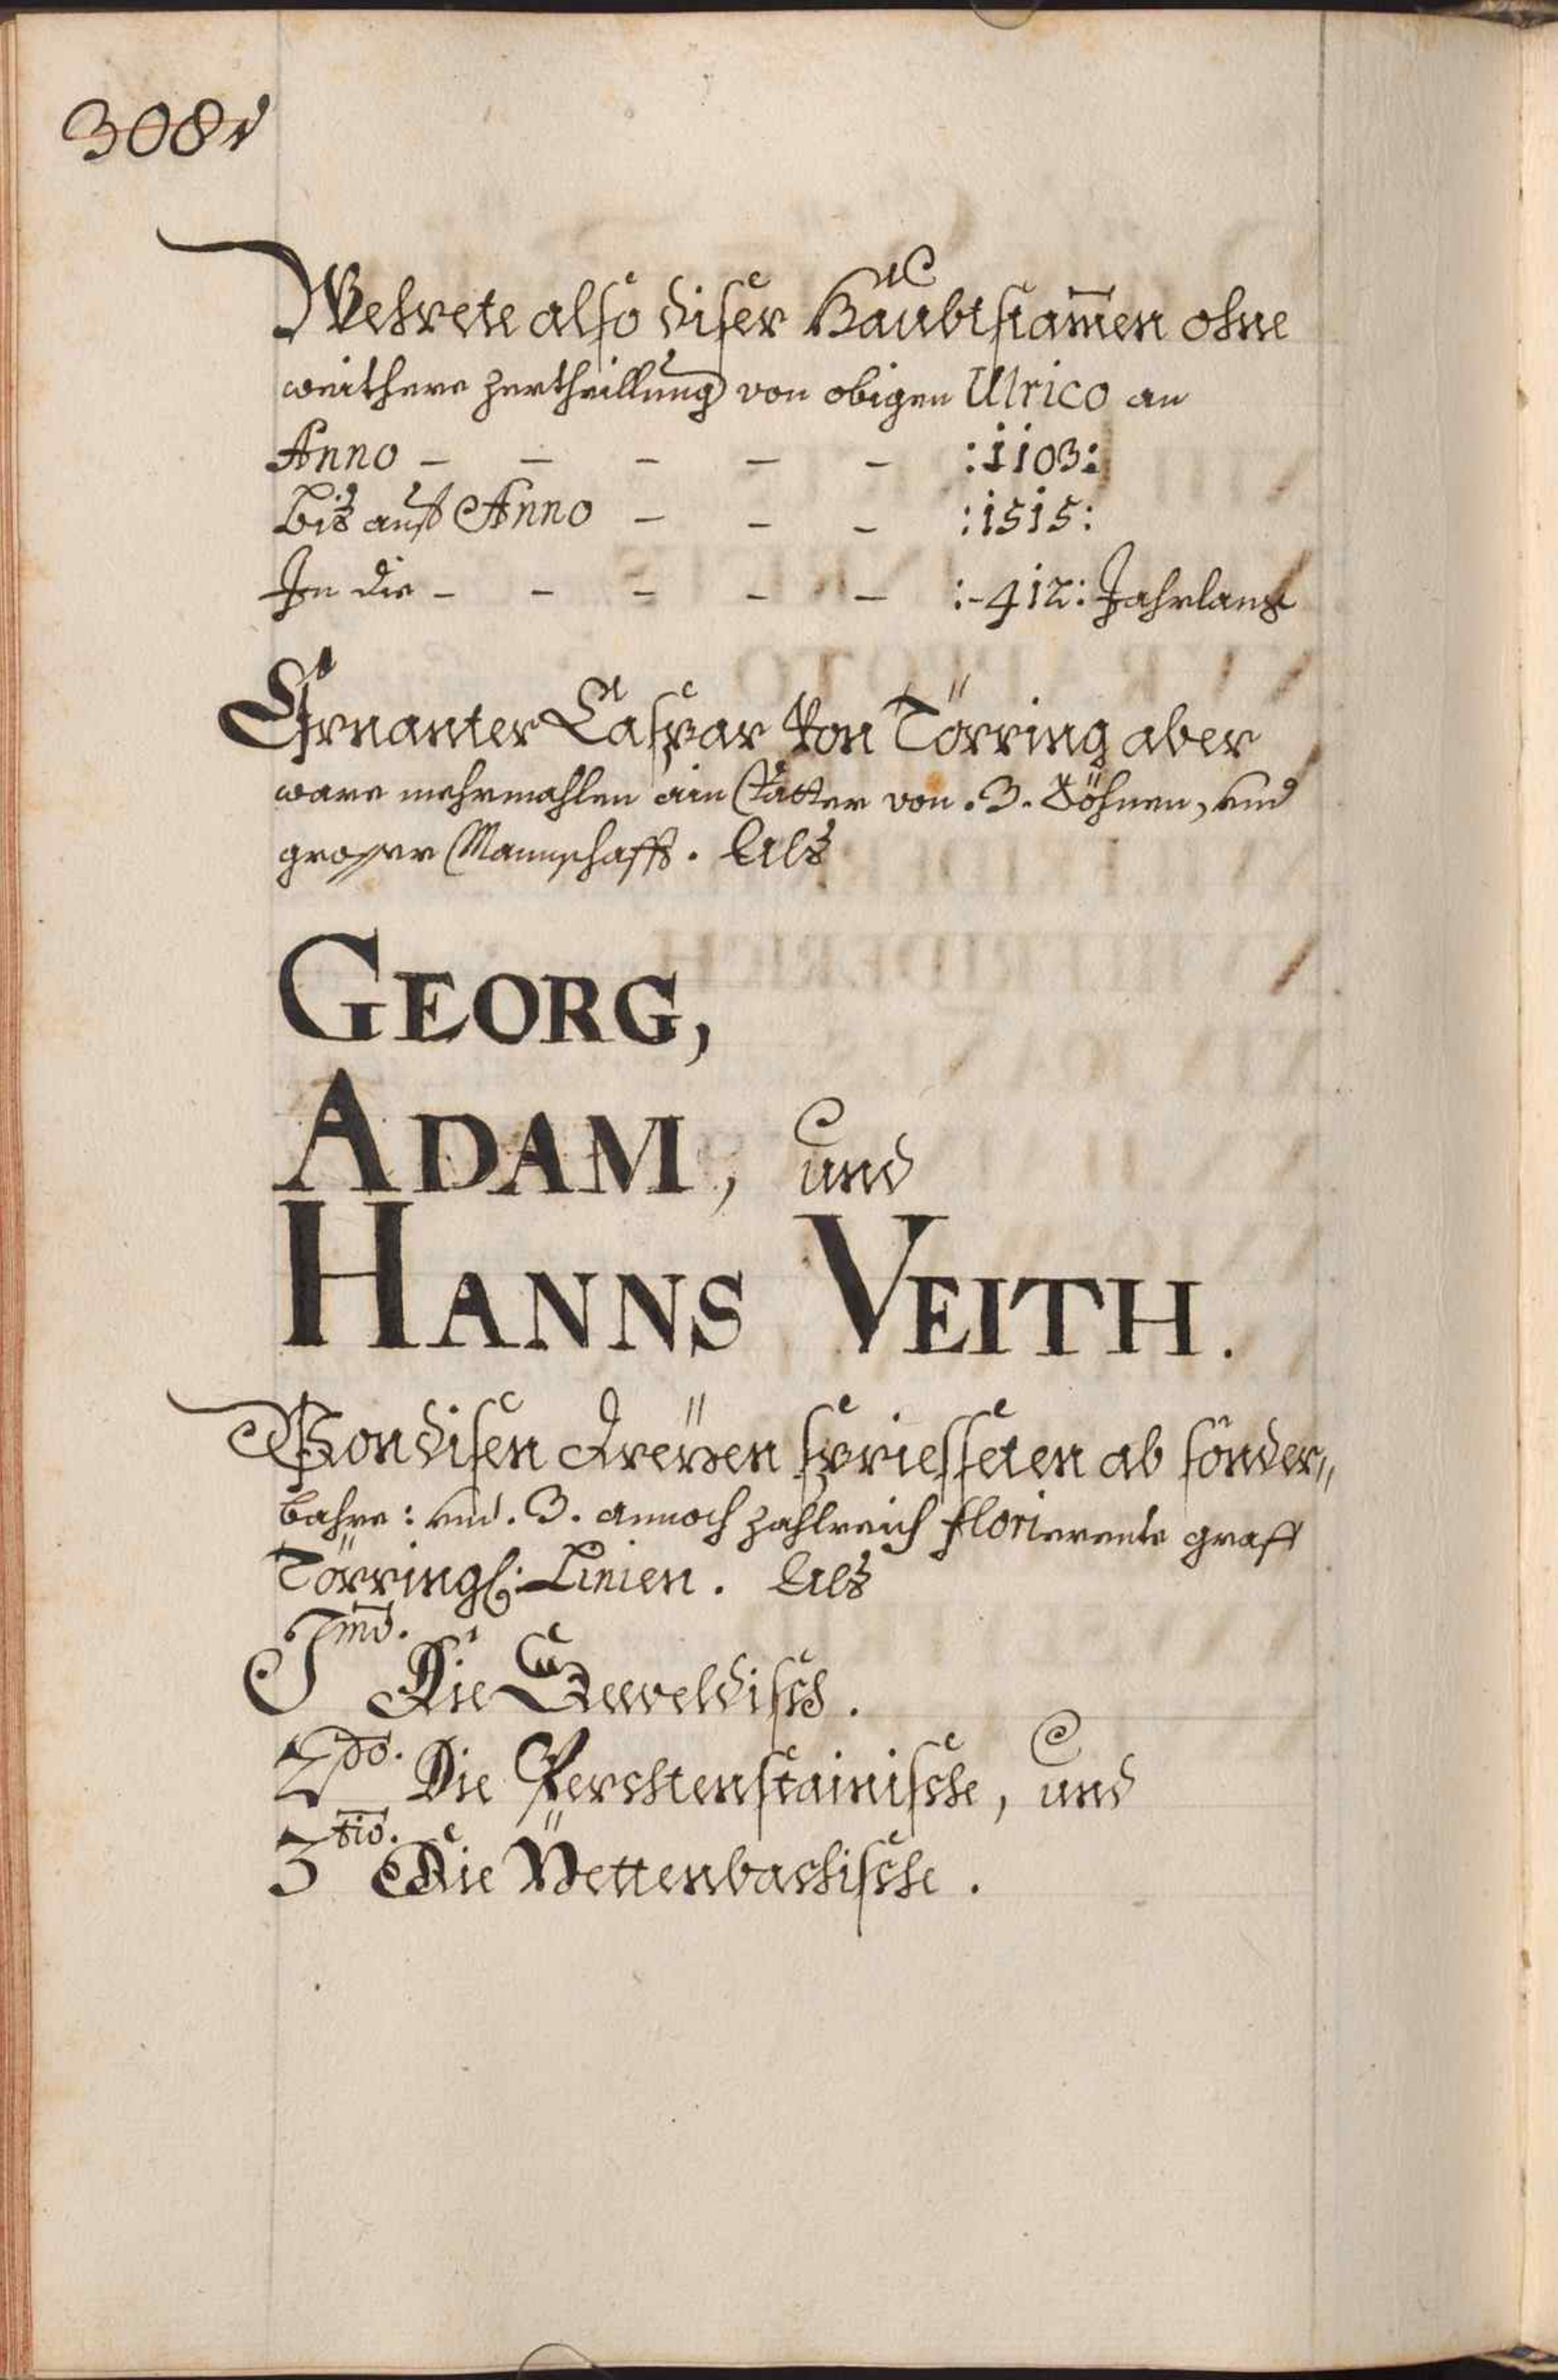 308v
Wehrete also diser Haubtstam̅en ohne
weithere zertheillung von obigen Ulrico an
Anno – – – – – :1103:
Biß auff Anno – – – :1515:
In die – – – – – :-412: Jahrlang
Ernanter Caspar von Törring aber
ware mehrmahlen ain Vatter von .3. Söhnen, und
grosser Mannschafft. Alß
GEORG,
ADAM, und
HANNS VEITH.
Von disen dreyen spriesseten ab sonder„
bahre: und .3. annoch zahlreich florierente graff
Törringl: Linien. Alß
I.mo. Die Seeveldisch.
2do. Die Perchtenstainische, und
3tio. Die Pettenbachische.